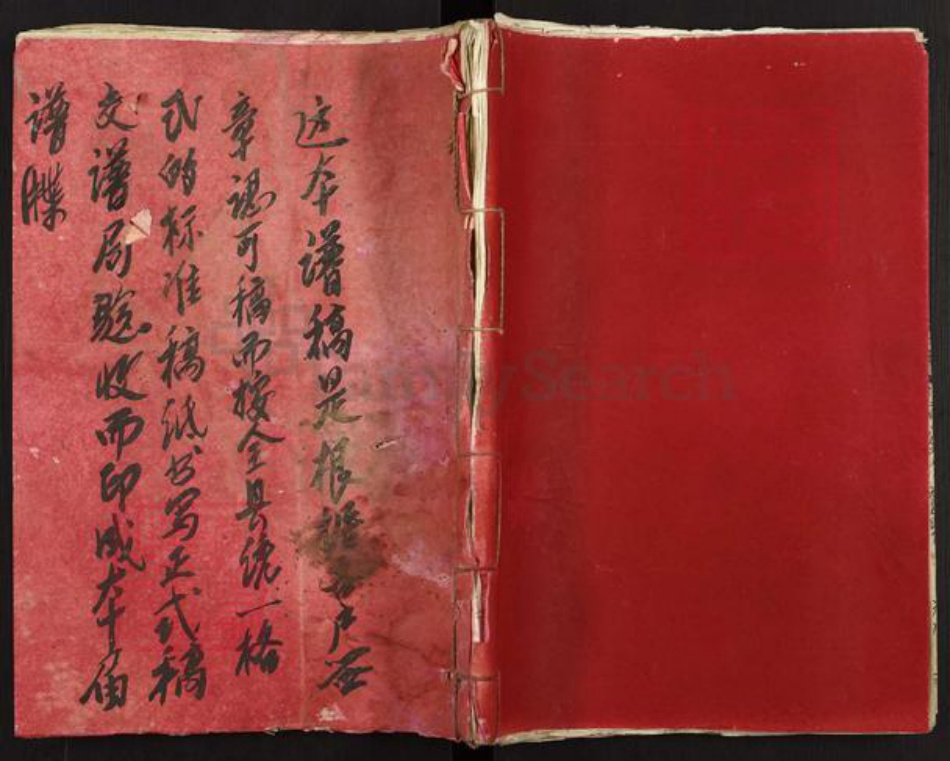 这本谱稿是根据户签
章认可稿而按全县统一格
式的标准稿纸书写正式稿
交谱局验收而印成本届
谱牒
FamilySearch